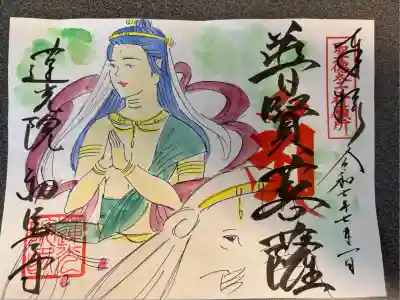 奉拝
令和七年七月一日
普賢菩薩
蓮光院 初馬寺